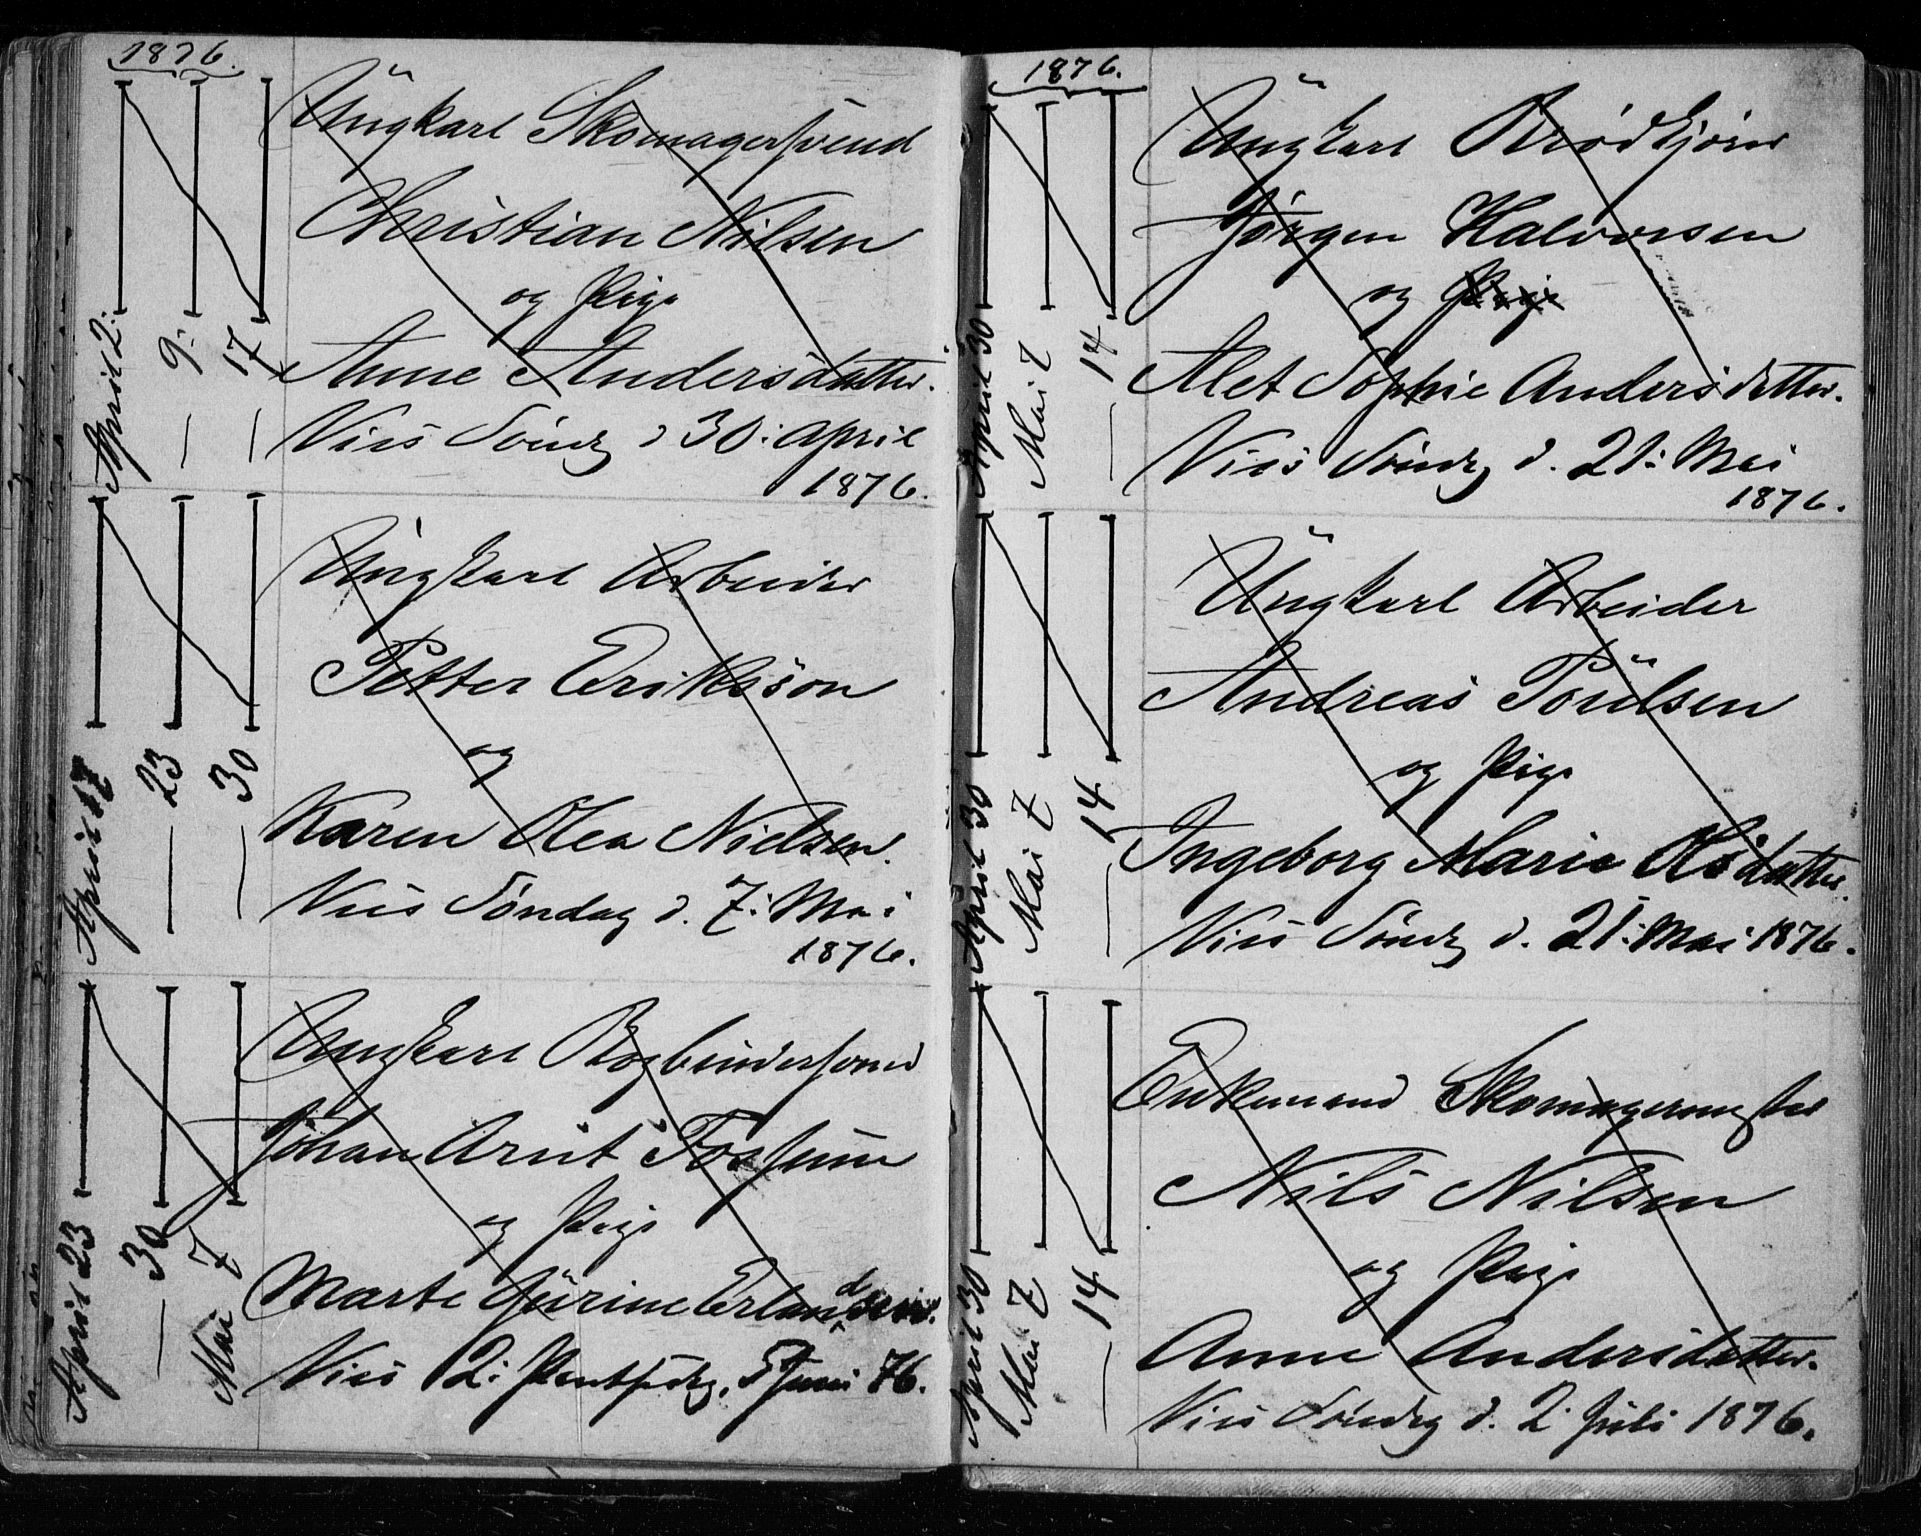 1876.
April 2:
— 9:
— 17
Ungkarl Skomagersvend
Christian Nilsen
og Pige
Anne Andersdatter.
Vies Søndg d 30: April
1876.
April 17
— 23
— 30
Ungkarl Arbeider
Petter Eriksson
og
Karen Olea Nielsen.
Vies Søndag d. 7: Mai
1876.
April 23
— 30
Mai 7
Ungkarl Bogbindersvend
Johan Arnt Fossum
og Pige
Marte Gurine Erlandsen.
Vies 2: Pintsedg, 5 Juni 76.
1876.
April 30
Mai 7
— 14
Ungkarl Brødkjører
Jørgen Halvorsen
og Pige
Alet Sophie Andersdatter.
Vies Søndg d. 21: Mai
1876.
April 30
Mai 7
— 14
Ungkarl Arbeider
Andreas Poulsen
og Pige
Ingeborg Marie Olsdatter.
Vies Søndg d. 21: Mai 1876.
April 30
Mai 7
— 14
Enkemand Skomagermester
Nils Nilsen
og Pige
Anne Andersdatter.
Vies Søndg d. 2 Juli 1876.